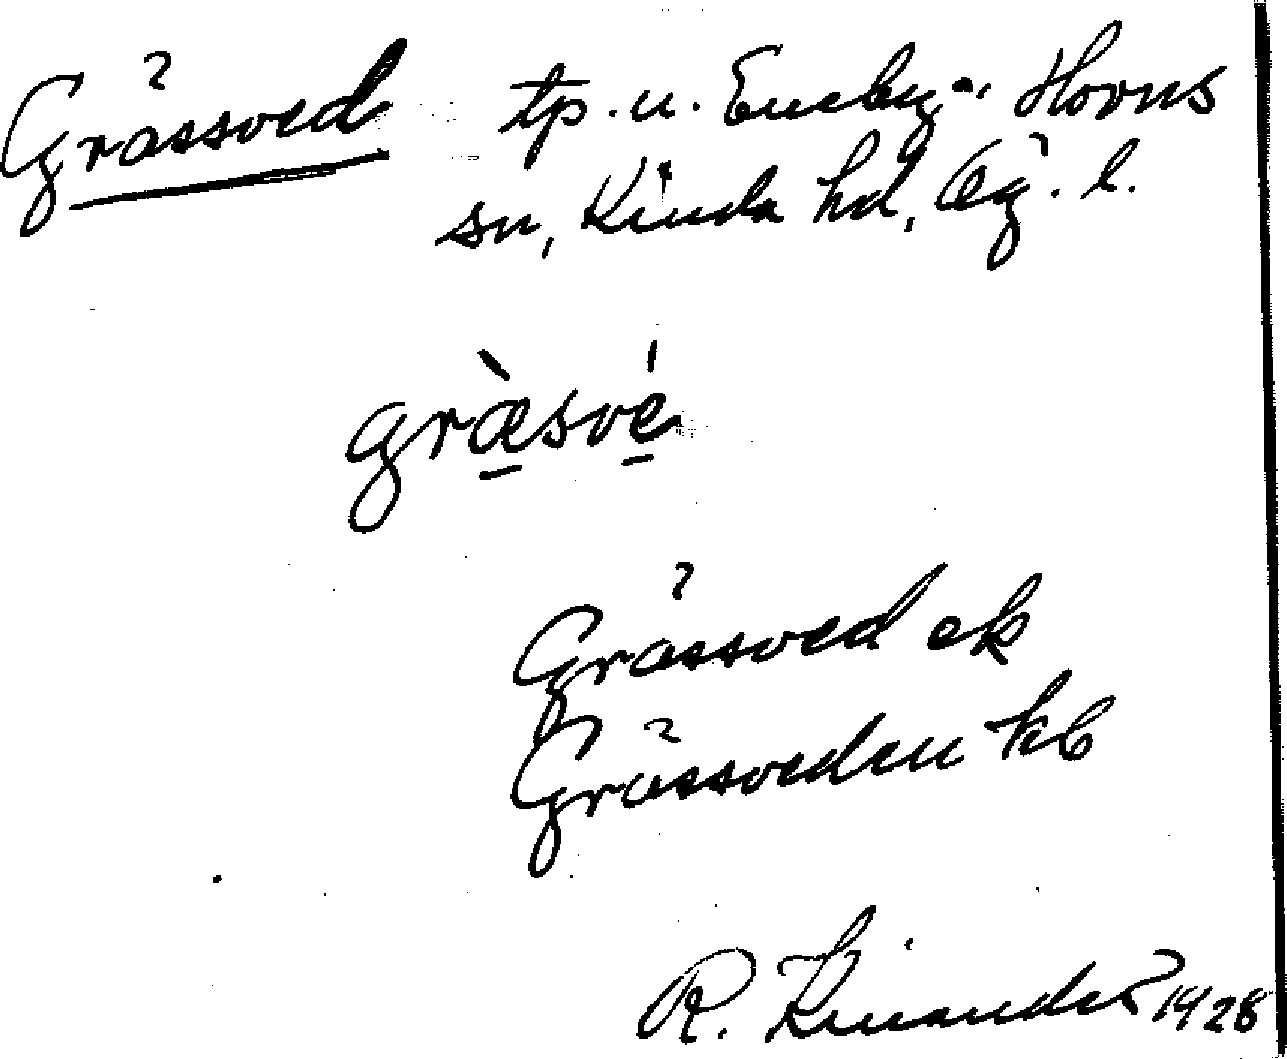 Grässved tp. u. Eneby, Horns
sn, Kinda hd, Ög. l.
græ̠̀své̠
Grässved ek
Grässveden kb
R. Kinander 1928